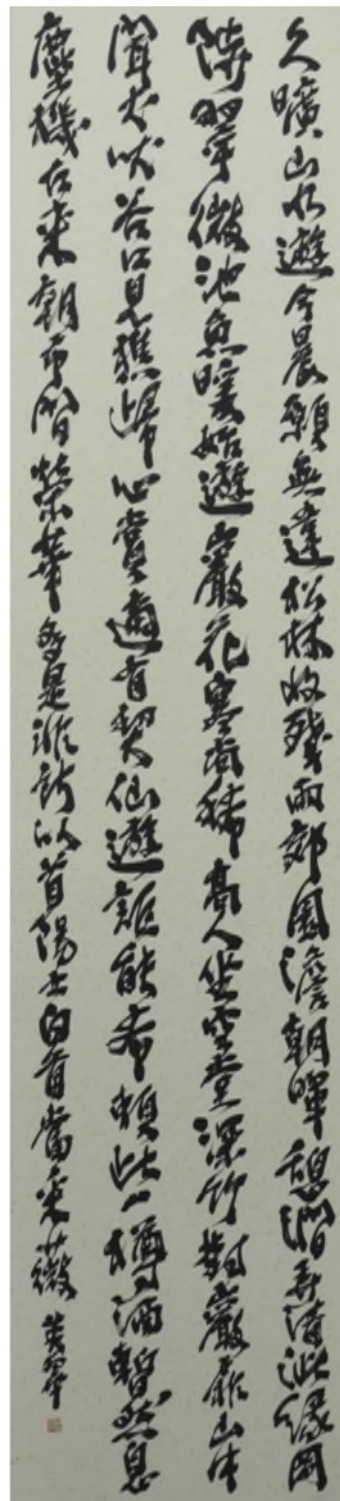 久曠山水遊今晨願無違松林收殘雨郊園澹朝暉憩澗弄清泚緣岡
陟翠微池魚暖始遊巖花寒尚稀高人坐空堂深竹對巖扉山中
聞犬吠谷口見樵歸心賞適有契仙遊誰能希賴此一樽酒暫然息
塵機古來朝市間榮華多是非所以首陽士白首當采薇